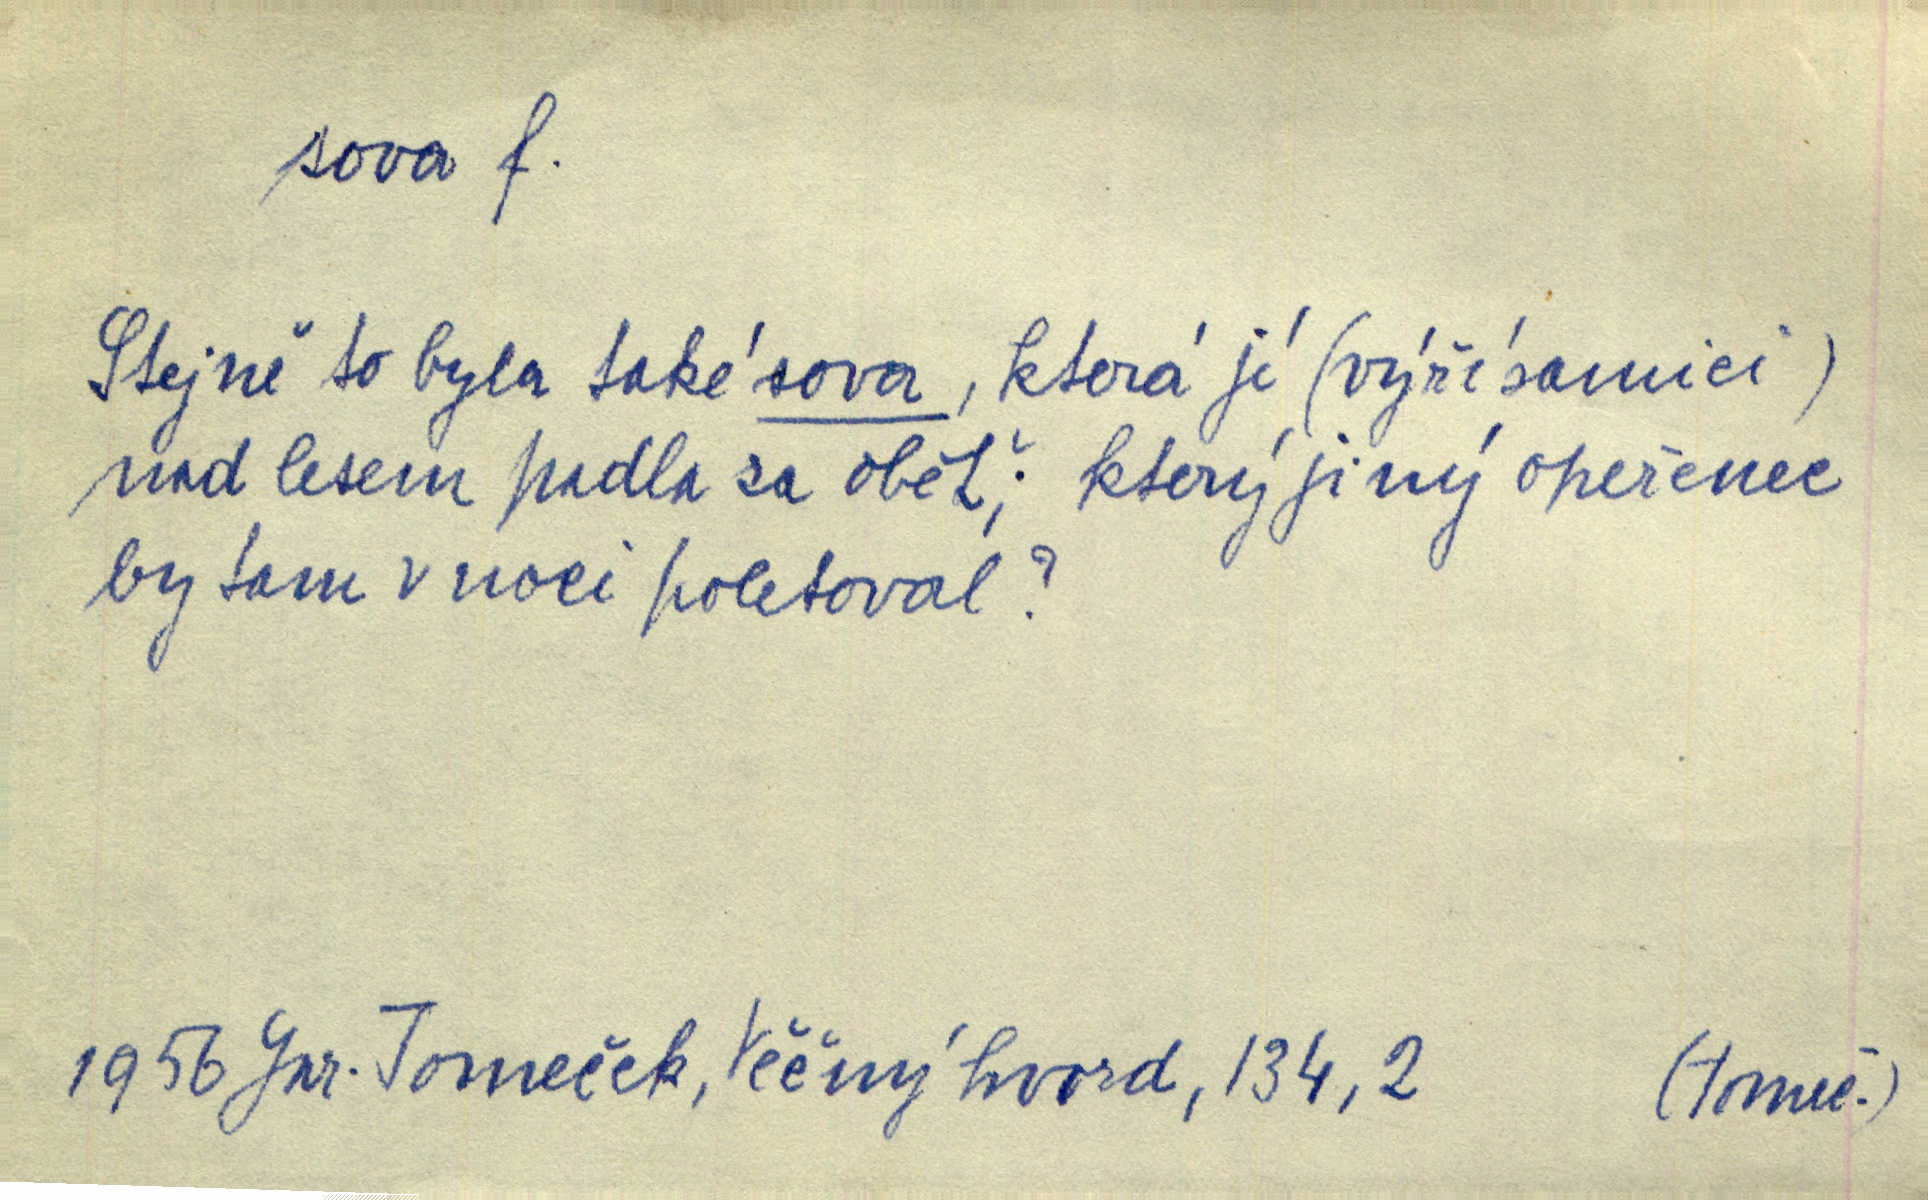 sova f.
Stejně to byla také sova, která jí (výří samici)
nad lesem padla za oběť; který jiný opeřenec
by tam v noci poletoval?
1956 Jar. Tomeček, Věčný hvozd, 134, 2 (Tomeč.)